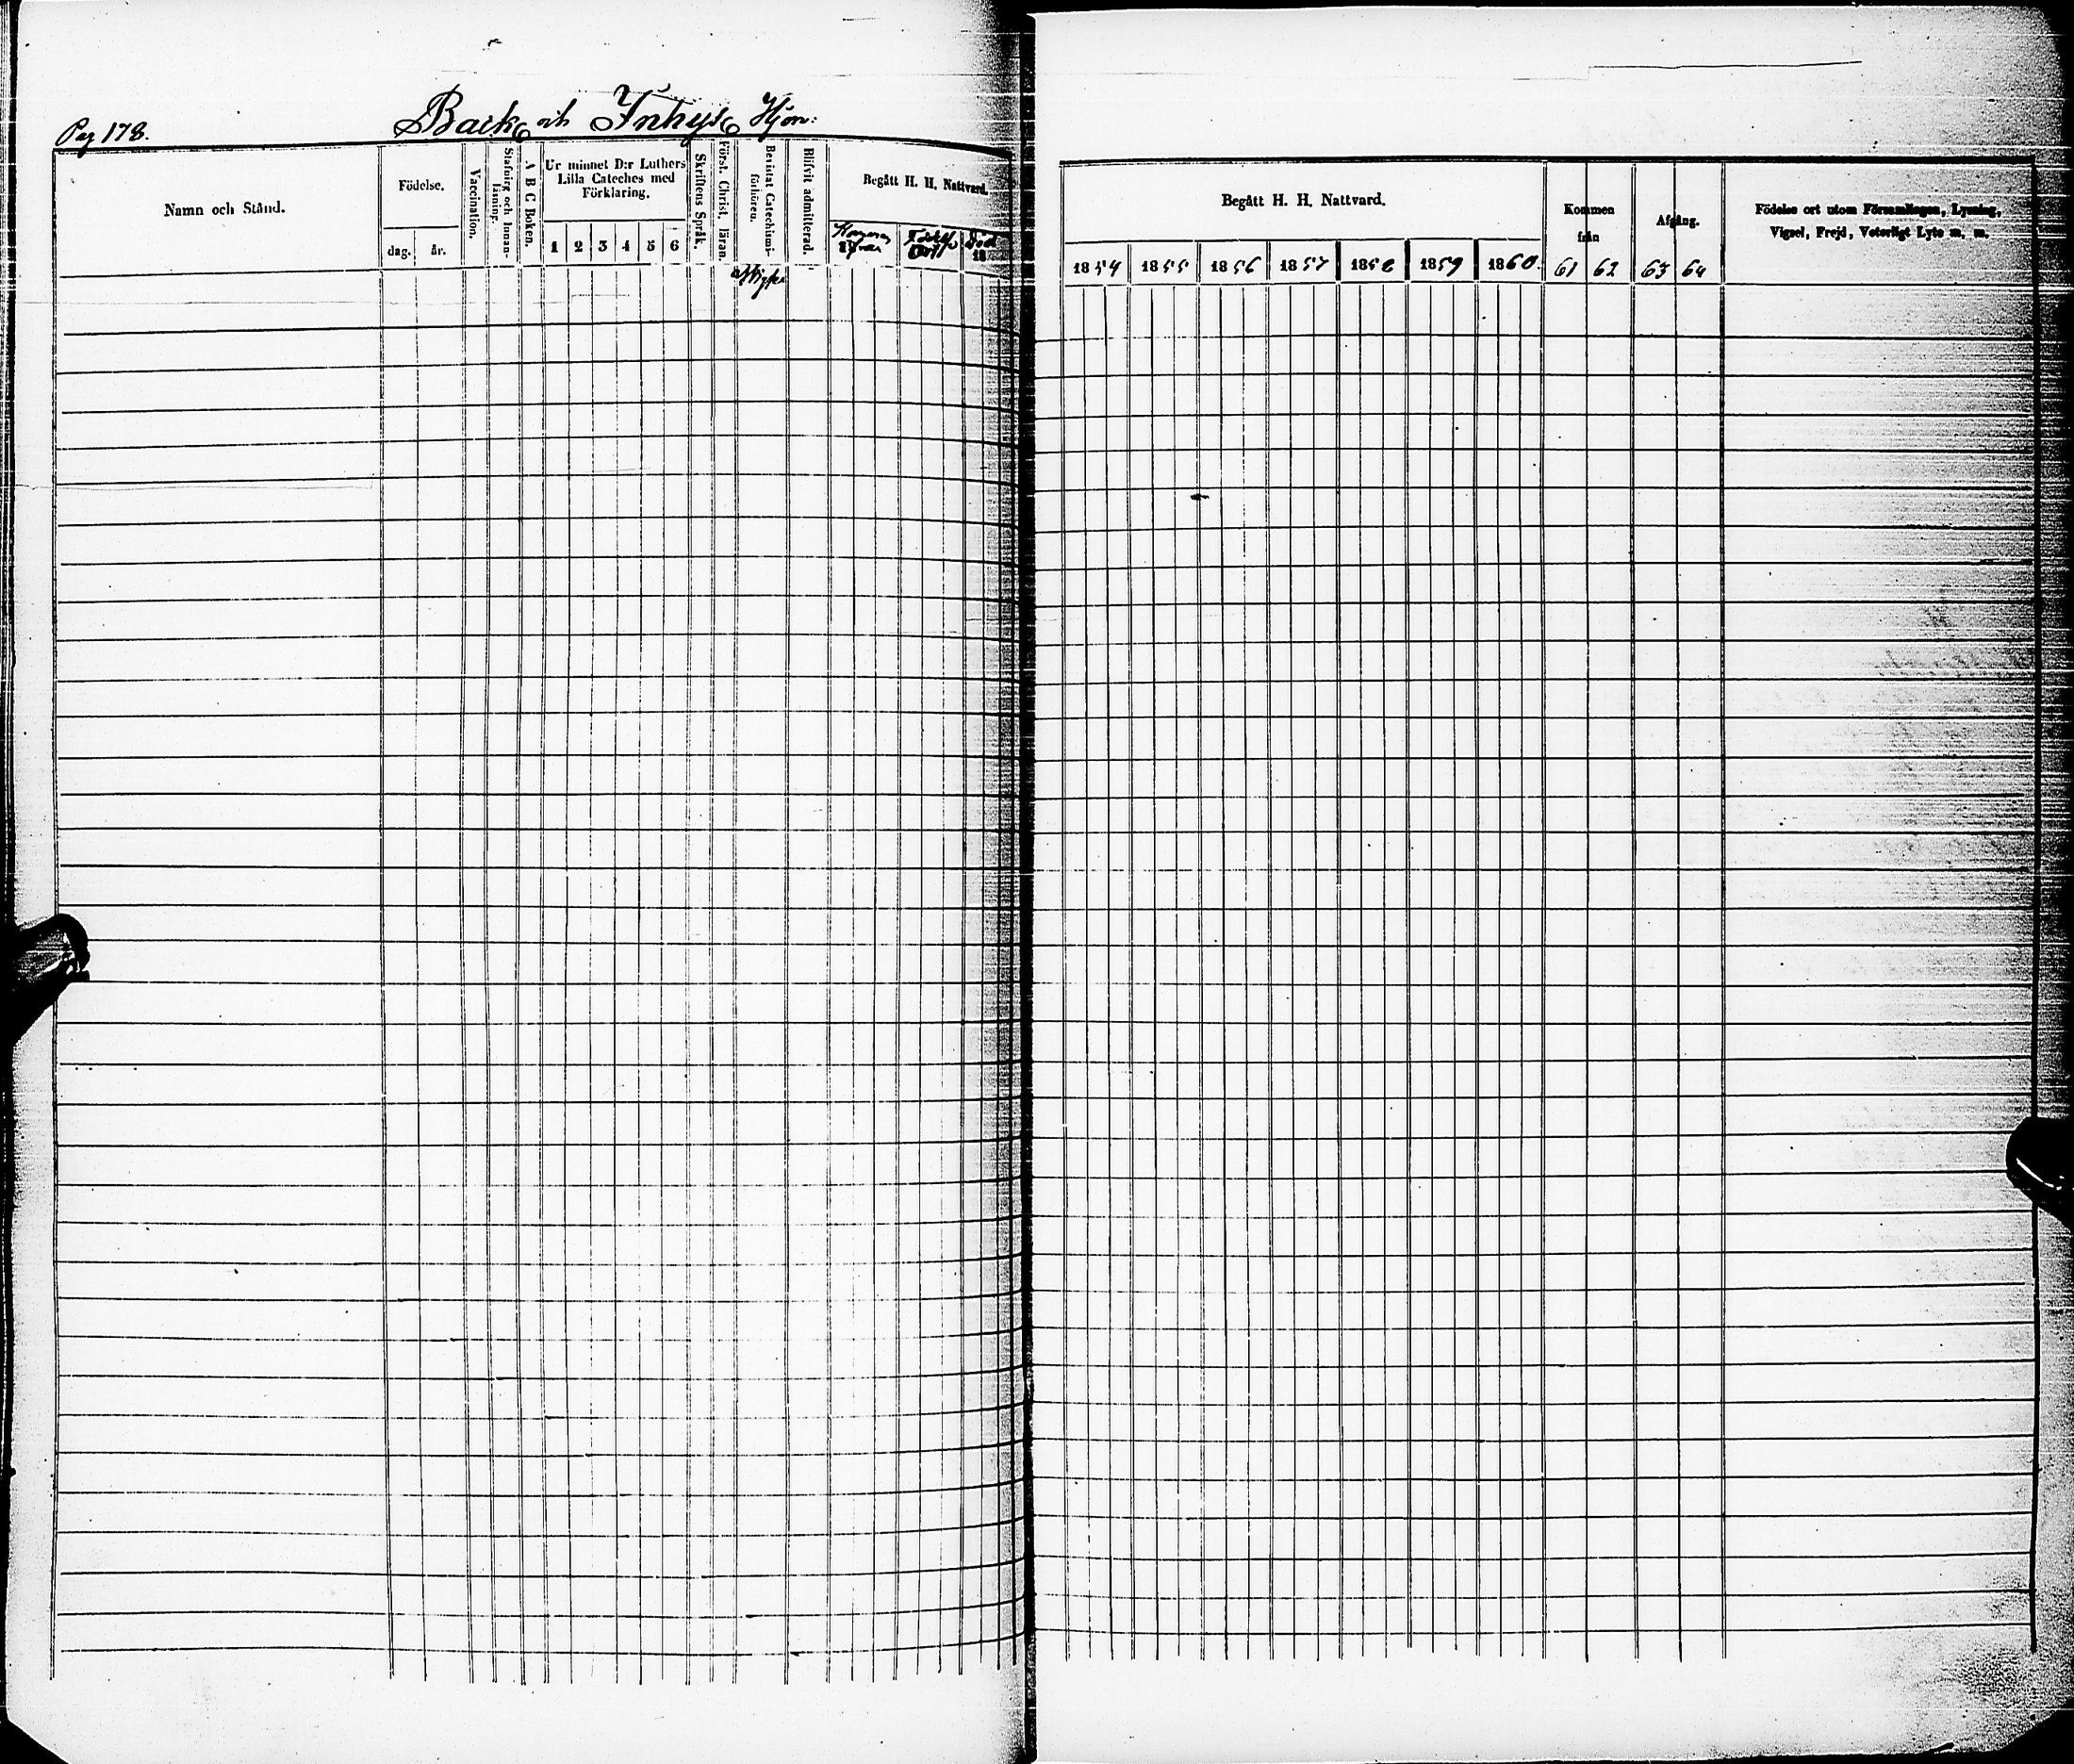 Pag 178.
Back och Inhyses Hjon:
Namn och Stånd.
Födelse.
dag. år.
Vaccination.
Stafning och Innan-
läsning.
A B C Boken.
Ur minnet D:r Luthers
Lilla Cateches med
Förklaring.
1 2 3 4 5 6
Skriftens Språk.
Först. Christ. läran.
Bevistat Catechismi-
förhören.
Blifvit admitterad.
Begått H. H. Nattvard.
18 18
Död
Begått H. H. Nattvard.
1854 1855 1856 1857 1858 1859 1860.
Kommen
från
61 62
Afgång.
63 64
Födelse ort utom Församlingen, Lysning,
Vigsel, Frejd, Veterligt Lyte m. m.